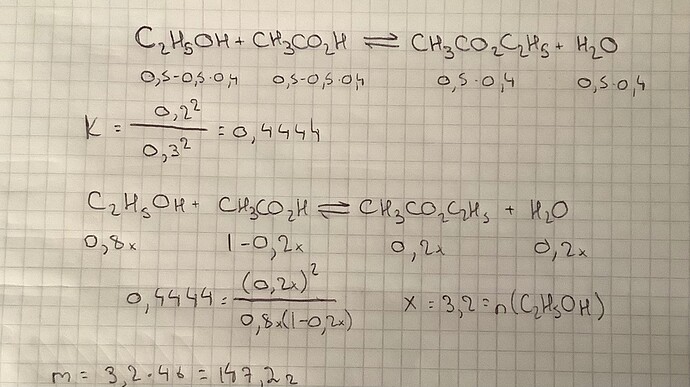 C₂H₅OH + CH₃CO₂H ⇌ CH₃CO₂C₂H₅ + H₂O
0,5-0,5·0,4 0,5-0,5·0,4 0,5·0,4 0,5·0,4
K = 0,2² / 0,3² = 0,4444
C₂H₅OH + CH₃CO₂H ⇌ CH₃CO₂C₂H₅ + H₂O
0,8x 1-0,2x 0,2x 0,2x
0,4444 = (0,2x)² / 0,8x(1-0,2x) x = 3,2 = n(C₂H₅OH)
m = 3,2·46 = 147,2g